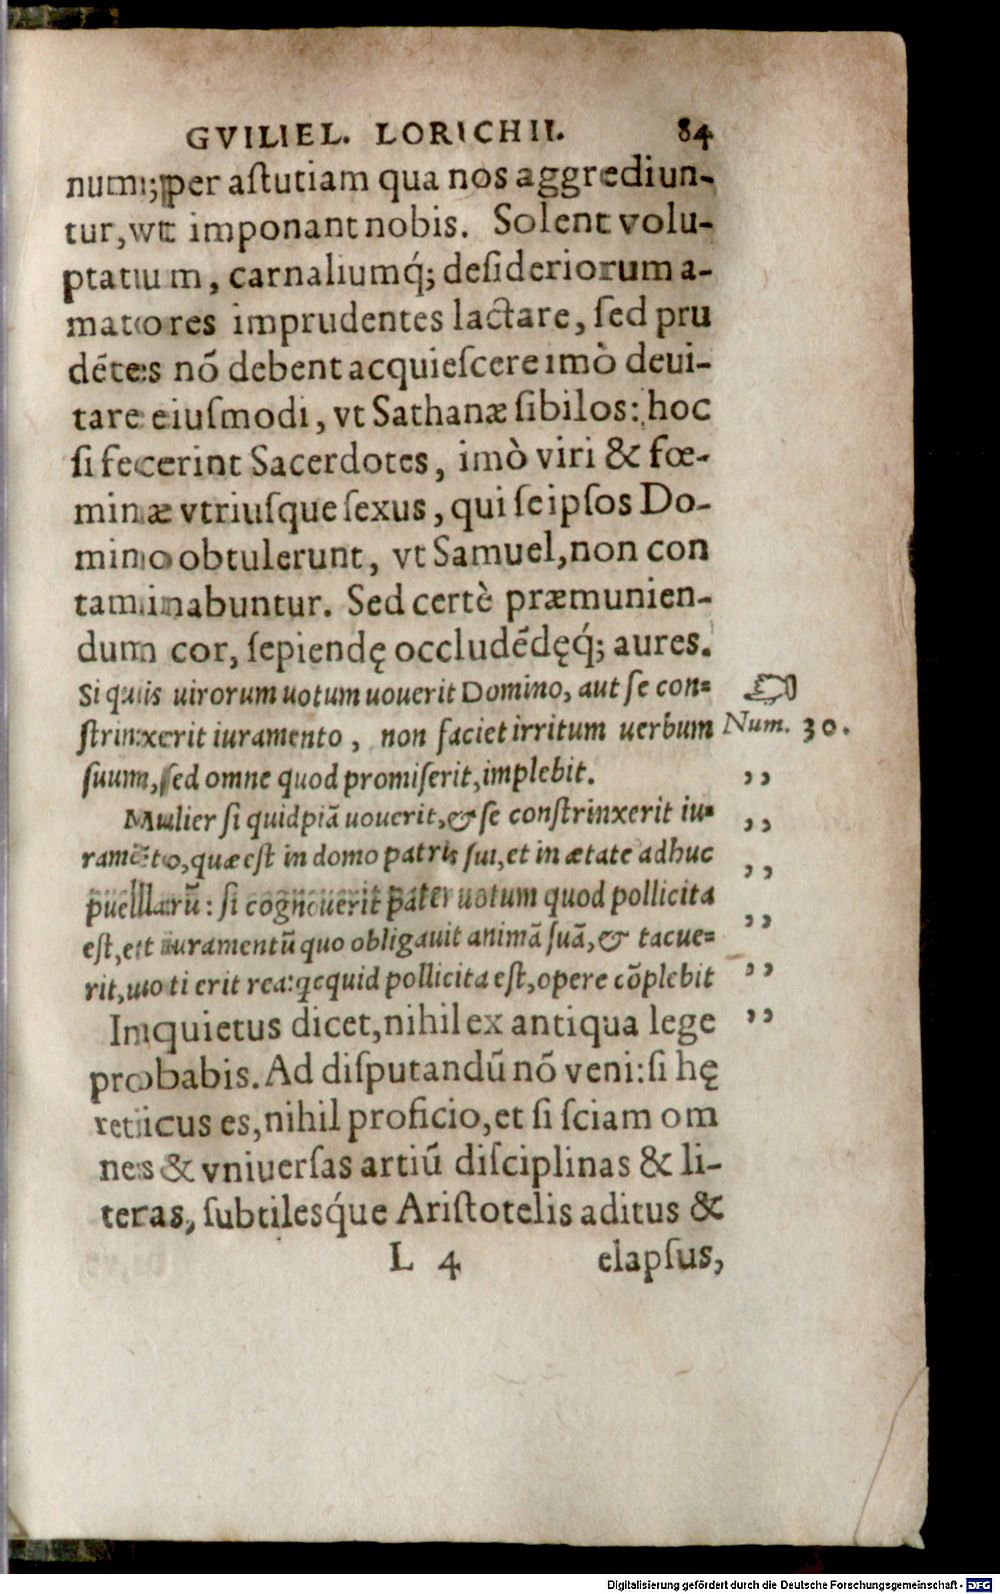 GVILIEL. LORICHII. 84
num; per aſtutiam qua nos aggrediun-
tur, vt imponant nobis. Solent volu-
ptatum, carnaliumq́; deſideriorum a-
matores imprudentes lactare, ſed pru
dẽtes nõ debent acquieſcere imò deui-
tare eiuſmodi, vt Sathanæ ſibilos: hoc
ſi fecerint Sacerdotes, imò viri & fœ-
minæ vtriuſque ſexus, qui ſeipſos Do-
mino obtulerunt, vt Samuel, non con
taminabuntur. Sed certè præmunien-
dum cor, ſepiendę occludẽdęq́; aures.
Si quis uirorum uotum uouerit Domino, aut ſe con-
ſtrinxerit iuramento, non faciet irritum uerbum Num. 30.
ſuum, ſed omne quod promiſerit, implebit. ,,
Mulier ſi quidpiã uouerit, & ſe conſtrinxerit iu- ,,
ramẽto, quæ eſt in domo patris ſui, et in ætate adhuc ,,
puellarũ: ſi cognouerit pater uotum quod pollicita ,,
eſt, et iuramentũ quo obligauit animã ſuã, & tacue- ,,
rit, uoti erit rea: qcquid pollicita eſt, opere cõplebit ,,
Inquietus dicet, nihil ex antiqua lege
probabis. Ad diſputandũ nõ veni: ſi hę
reticus es, nihil proficio, et ſi ſciam om
nes & vniuerſas artiũ diſciplinas & li-
teras, ſubtilesq́ue Ariſtotelis aditus &
L 4 elapſus,
Digitalisierung gefördert durch die Deutsche Forschungsgemeinschaft - DFG